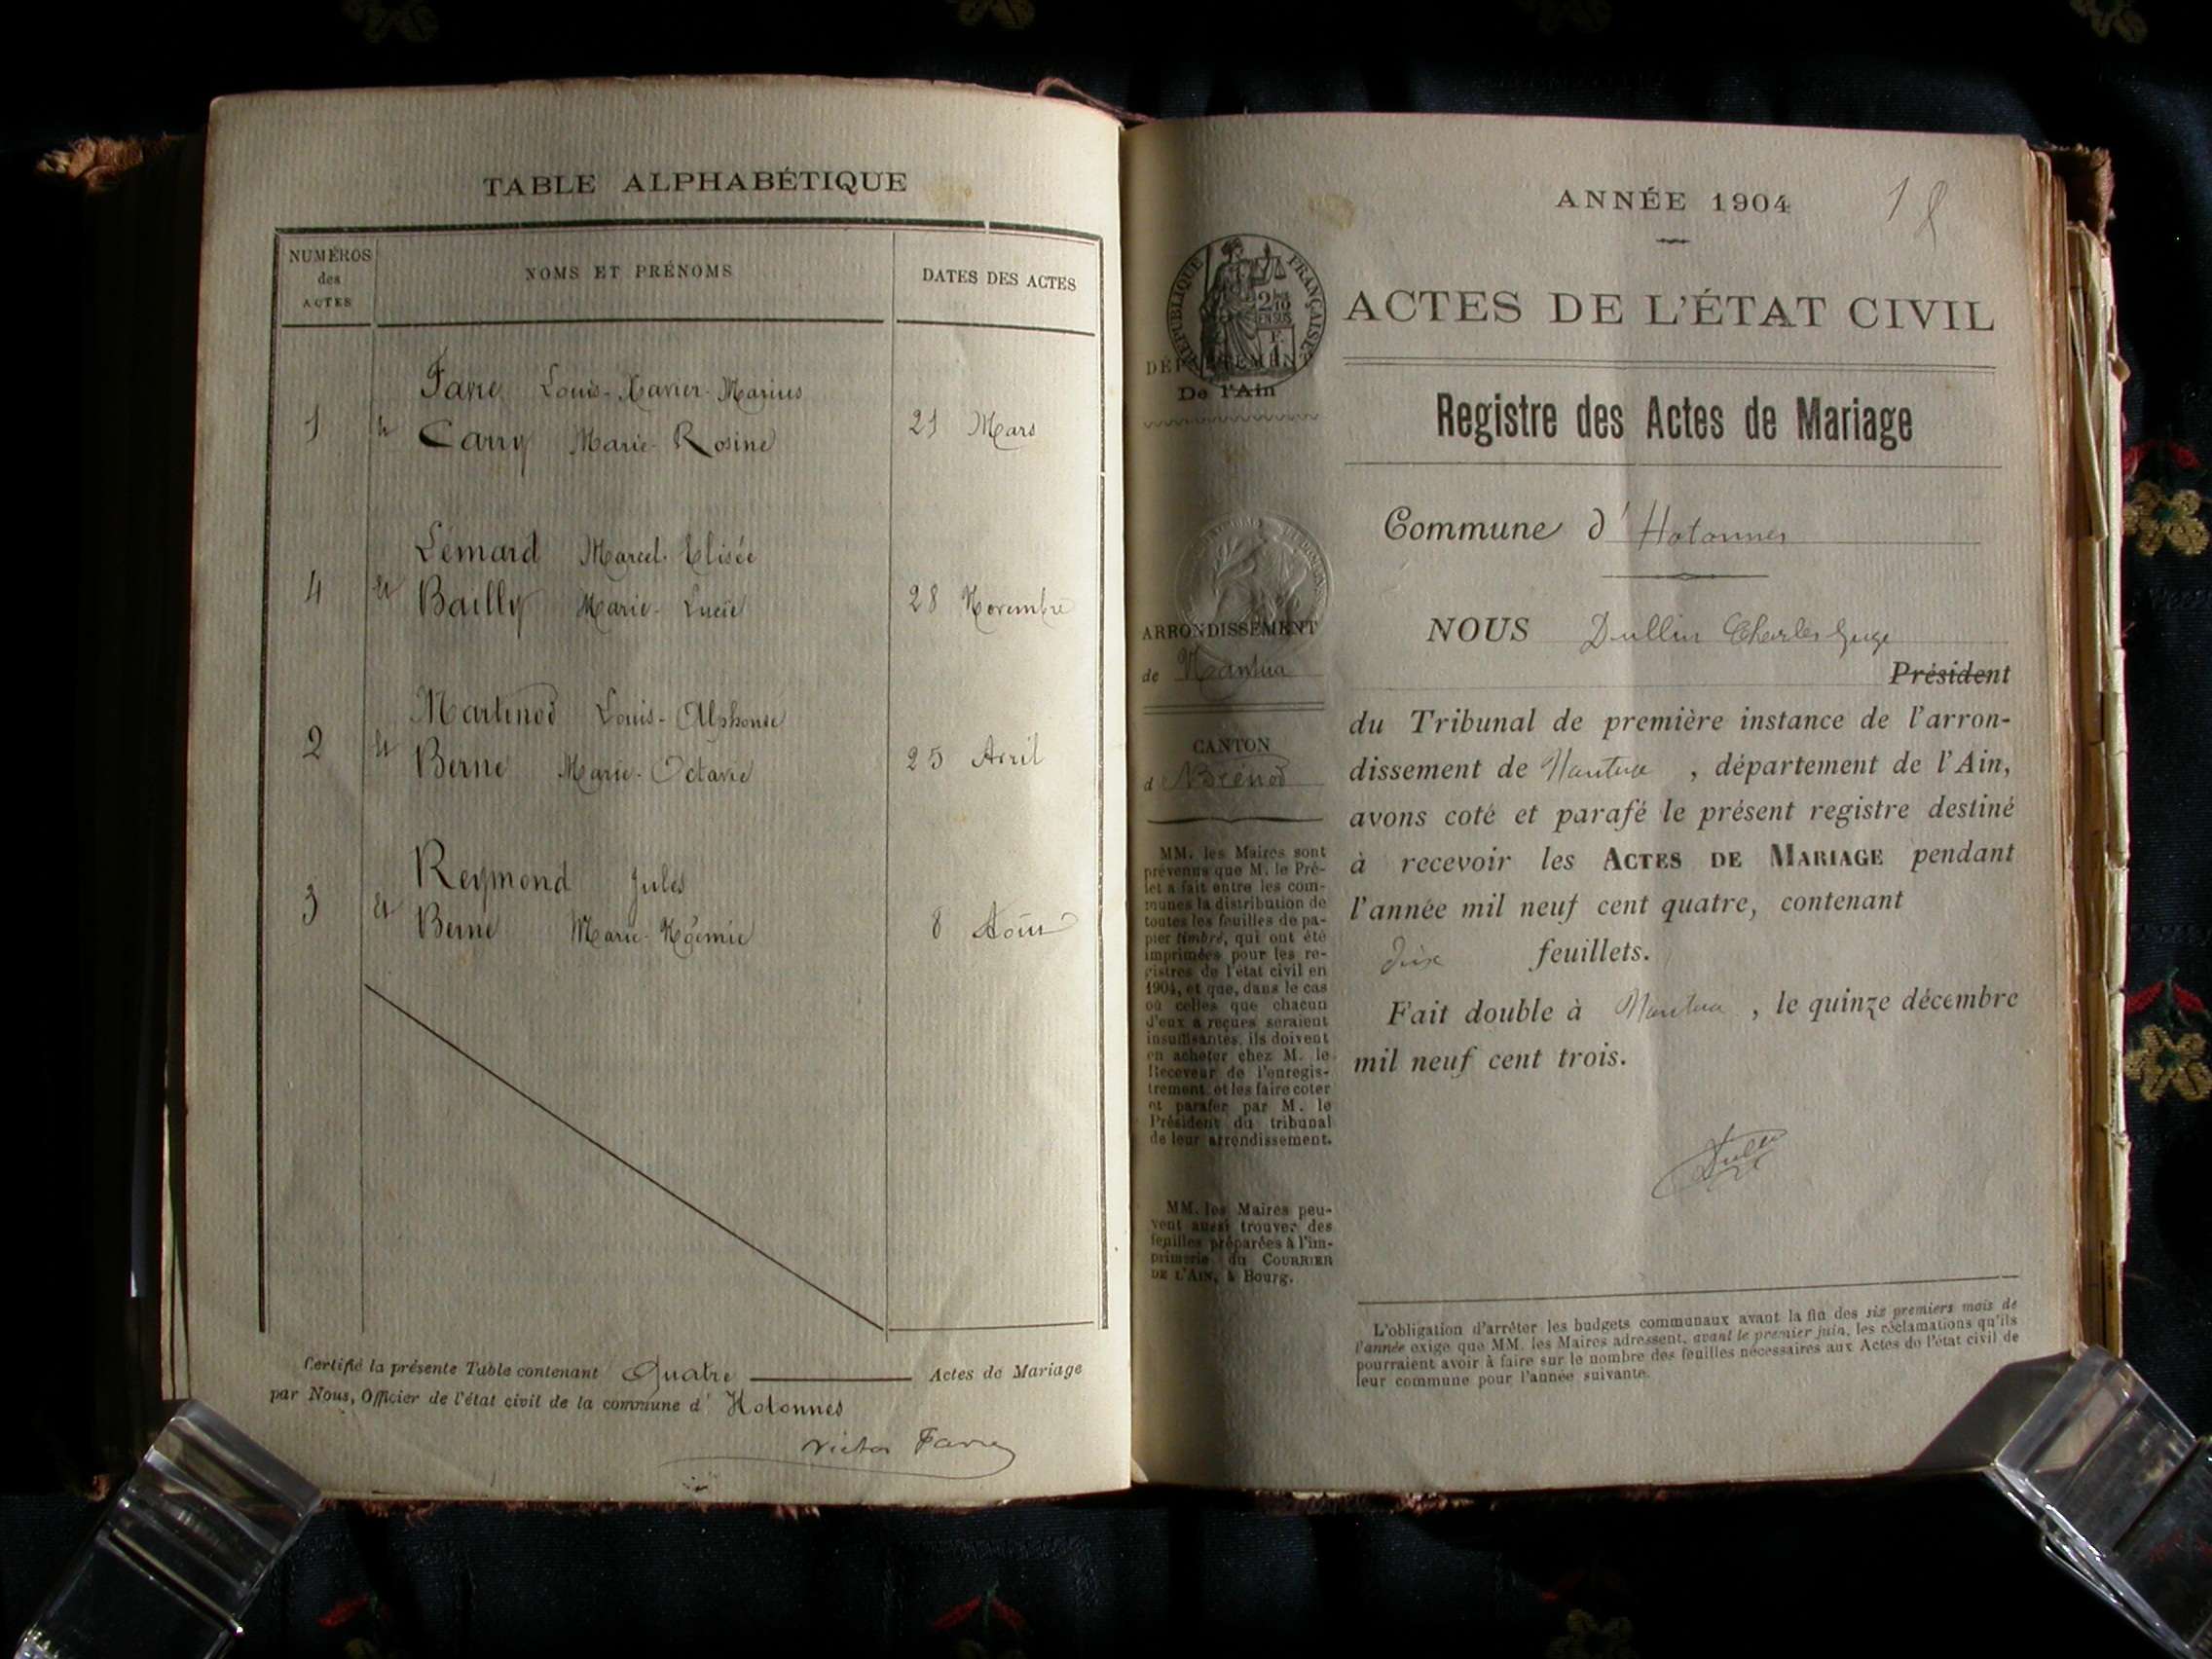 TABLE ALPHABÉTIQUE
NUMÉROS
des
ACTES
NOMS ET PRÉNOMS
DATES DES ACTES
Favre Louis-Xavier-Marius
1 et Carry Marie-Rosine 21 Mars
Lémard Marcel-Elisée
4 et Bailly Marie-Lucie 28 Novembre
Martinod Louis-Alphonse
2 et Berne Marie-Octavie 25 Avril
Reymond Jules
3 et Berne Marie-Noëmie 8 Août
Certifié la présente Table contenant Quatre Actes de Mariage
par Nous, Officier de l'état civil de la commune d' Hotonnes
Victor Favre
ANNÉE 1904
18
RÉPUBLIQUE FRANÇAISE
2/10
EN SUS
F.
1
ACTES DE L'ÉTAT CIVIL
DÉPARTEMENT
De l'Ain
Registre des Actes de Mariage
Commune d' Hotonnes
ARRONDISSEMENT
de Nantua
CANTON
d Brénod
MM. les Maires sont
prévenus que M. le Pré-
fet a fait entre les com-
munes la distribution de
toutes les feuilles de pa-
pier timbré, qui ont été
imprimées pour les re-
gistres de l'état civil en
1904, et que, dans le cas
où celles que chacun
d'eux a reçues seraient
insuffisantes, ils doivent
en acheter chez M. le
Receveur de l'enregis-
trement et les faire coter
et parafer par M. le
Président du tribunal
de leur arrondissement.
MM. les Maires peu-
vent aussi trouver des
feuilles préparées à l'im-
primerie du COURRIER
DE L'AIN, à Bourg.
NOUS Dullin Charles Juge
Président
du Tribunal de première instance de l'arron-
dissement de Nantua , département de l'Ain,
avons coté et parafé le présent registre destiné
à recevoir les ACTES DE MARIAGE pendant
l'année mil neuf cent quatre, contenant
dix feuillets.
Fait double à Nantua , le quinze décembre
mil neuf cent trois.
L'obligation d'arrêter les budgets communaux avant la fin des six premiers mois de
l'année exige que MM. les Maires adressent, avant le premier juin, les réclamations qu'ils
pourraient avoir à faire sur le nombre des feuilles nécessaires aux Actes de l'état civil de
leur commune pour l'année suivante.